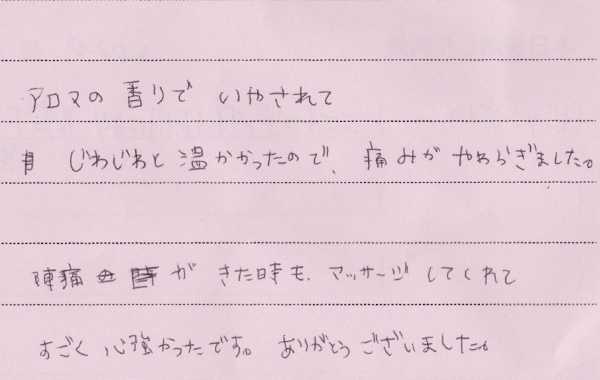 アロマの香りで いやされて
じわじわと温かかったので、痛みが やわらぎました。
陣痛が きた時も、マッサージしてくれて
すごく 心強かったです。ありがとう ございました。